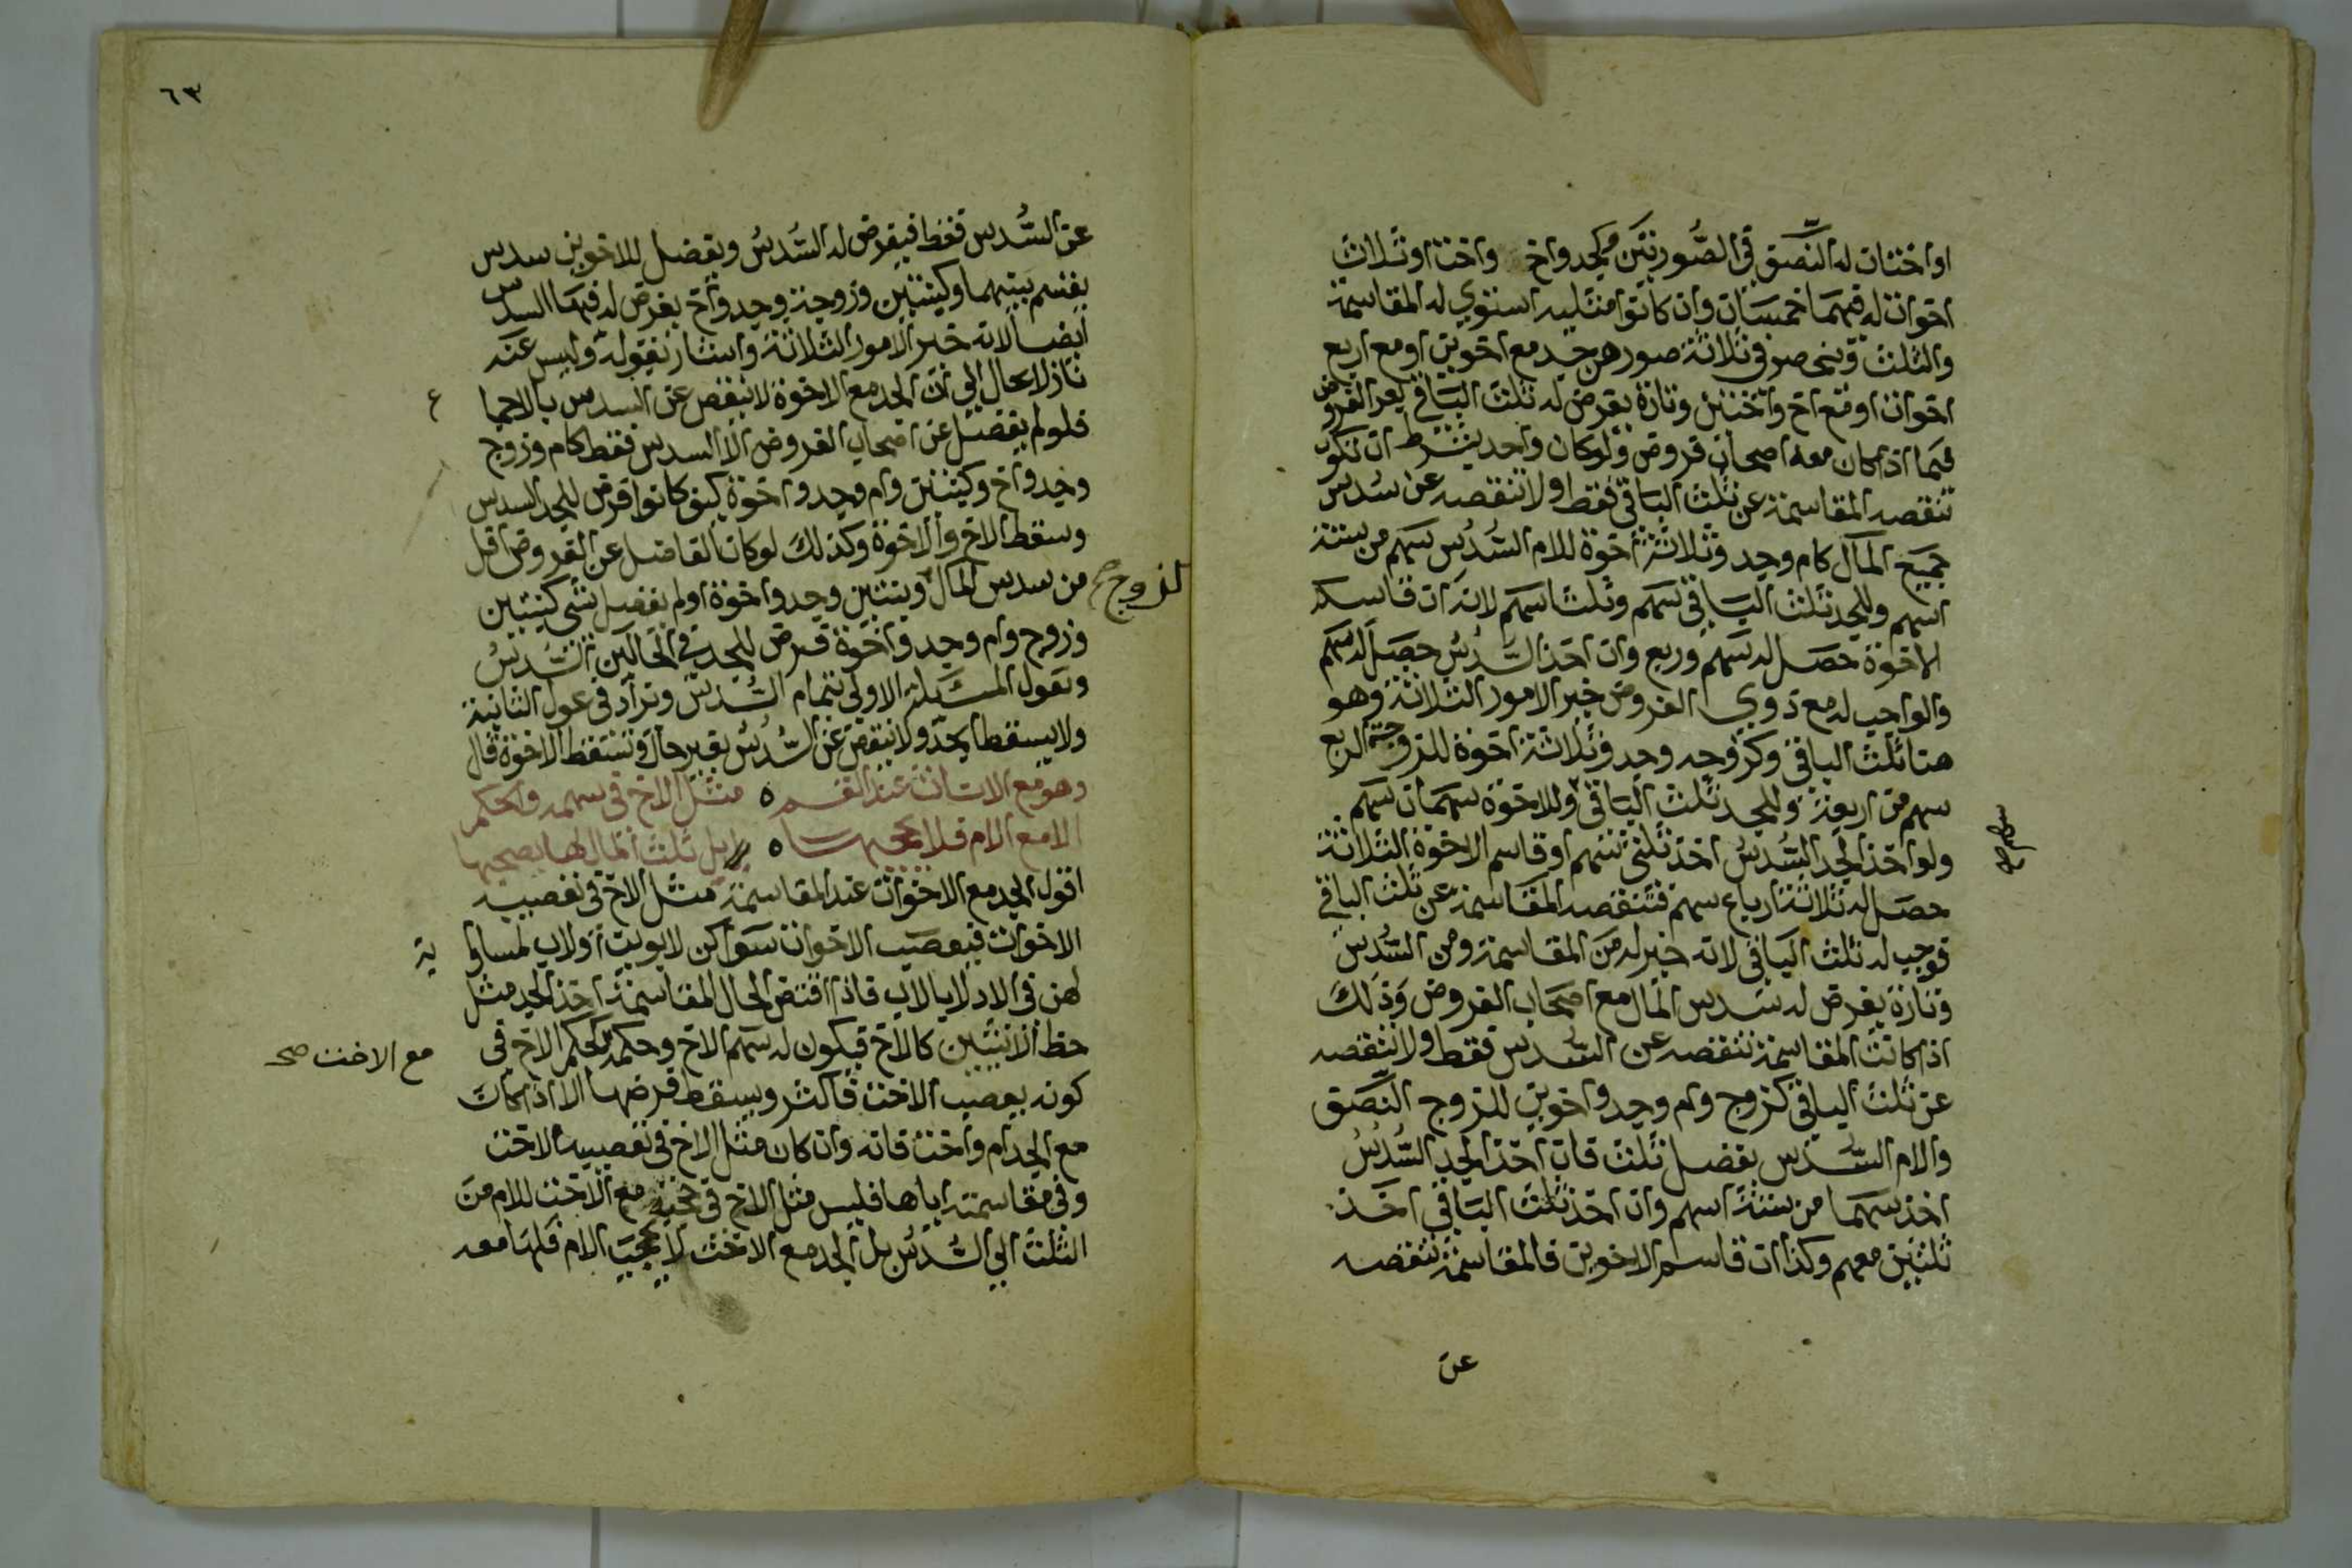 او اختان له النصف في الصورتين وكجد واخ واخت او ثلاث
اخوات له فيهما خمسان وان كانوا مثليه استوي له المقاسمة
والثلث وينحصر في ثلاثة صور هن جد مع اخوين او مع اربع
اخوات او مع اخ واختين وتارة يفرض له ثلث الباقي بعد الفروض
فيما اذا كان معه اصحاب فروض ولو كان واحد بشرط ان تكون
تنقصه المقاسمة عن ثلث الباقي فقط او لا تنقصه عن سدس
جميع المال كام وجد وثلاثة اخوة للام السدس سهم من ستة
اسهم وللجد ثلث الباقي سهم وثلثا سهم لانه ان قاسم
الاخوة حصل له سهم وربع وان اخذ السدس حصل له سهم
والواجب له مع ذوي الفروض خير الامور الثلاثة وهو
هنا ثلث الباقي وكزوجه وجد وثلاثة اخوة للزوجة الربع
سهم من اربعة وللجد ثلث الباقي وللاخوة سهمان سهم
ولو اخذ الجد السدس اخذ ثلثي سهم او قاسم الاخوة الثلاثة
حصل له ثلاثة ارباع سهم فتنقصه المقاسمة عن ثلث الباقي
فوجب له ثلث الباقي لانه خير له من المقاسمة ومن السدس
وتارة يفرض له سدس المال مع اصحاب الفروض وذلك
اذا كانت المقاسمة تنقصه عن السدس فقط ولا تنقصه
عن ثلث الباقي كزوج وام وجد واخوين للزوج النصف
والام السدس يفضل ثلث فان اخذ الجد السدس
اخذ سهما من ستة اسهم وان اخذ ثلث الباقي اخذ
ثلثين معهم وكذا ان قاسم الاخوين فالمقاسمة تنقصه
عن
٦٣
عن السدس فقط فيفرض له السدس ويفضل للاخوين سدس
يقسم بينهما وكبنتين وزوجة وجد واخ يفرض له فيها السدس
ايضا لانه خير الامور الثلاثة واشار بقوله وليس عنه
نازلا بحال الي ان الجد مع الاخوة لا ينقص عن السدس بالاجما
ع
فلو لم يفضل عن اصحاب الفروض الا السدس فقط كام وزوج
وجد واخ وكبنتين وام وجد واخوة كيف كانوا فرض للجد السدس
وسقط الاخ والاخوة وكذلك لو كان الفاضل عن الفروض اقل
من سدس المال وبنتين وجد واخوة او لم يفضل شي كبنتين
لزوج صح
وزوج وام وجد واخوة فرض للجد في الحالين السدس
وتعول المسئلة الاولي بتمام السدس وتزاد في عول الثانية
ولا يسقط الجد ولا ينقص عن السدس بغير حال وتسقط الاخوة قال
وهو مع الاناث عند القسم ٥ مثل الاخ في سهمه والحكم
الا مع الام فلا يحجبها ٥ بل ثلث المال لها يصحبها
اقول الجد مع الاخوات عند المقاسمة مثل الاخ في نصيبه
الاخوات فيعصب الاخوات سوا كن لابوين او لاب لمساوا
ية
لهن في الادلا بالاب فاذا اقتض الحال المقاسمة اخذ الجد مثل
حظ الانثيين كالاخ فيكون له سهم الاخ وحكمه كحكم الاخ في
مع الاخت صح
كونه يعصب الاخت فاكثر ويسقط فرضها الا اذا كان
مع الجد ام واخت فانه وان كان مثل الاخ في تعصيبه الاخت
وفي مقاسمته اياها فليس مثل الاخ في حجبه مع الاخت للام من
الثلث الي السدس بل الجد مع الاخت لا يحجب الام فلها معه